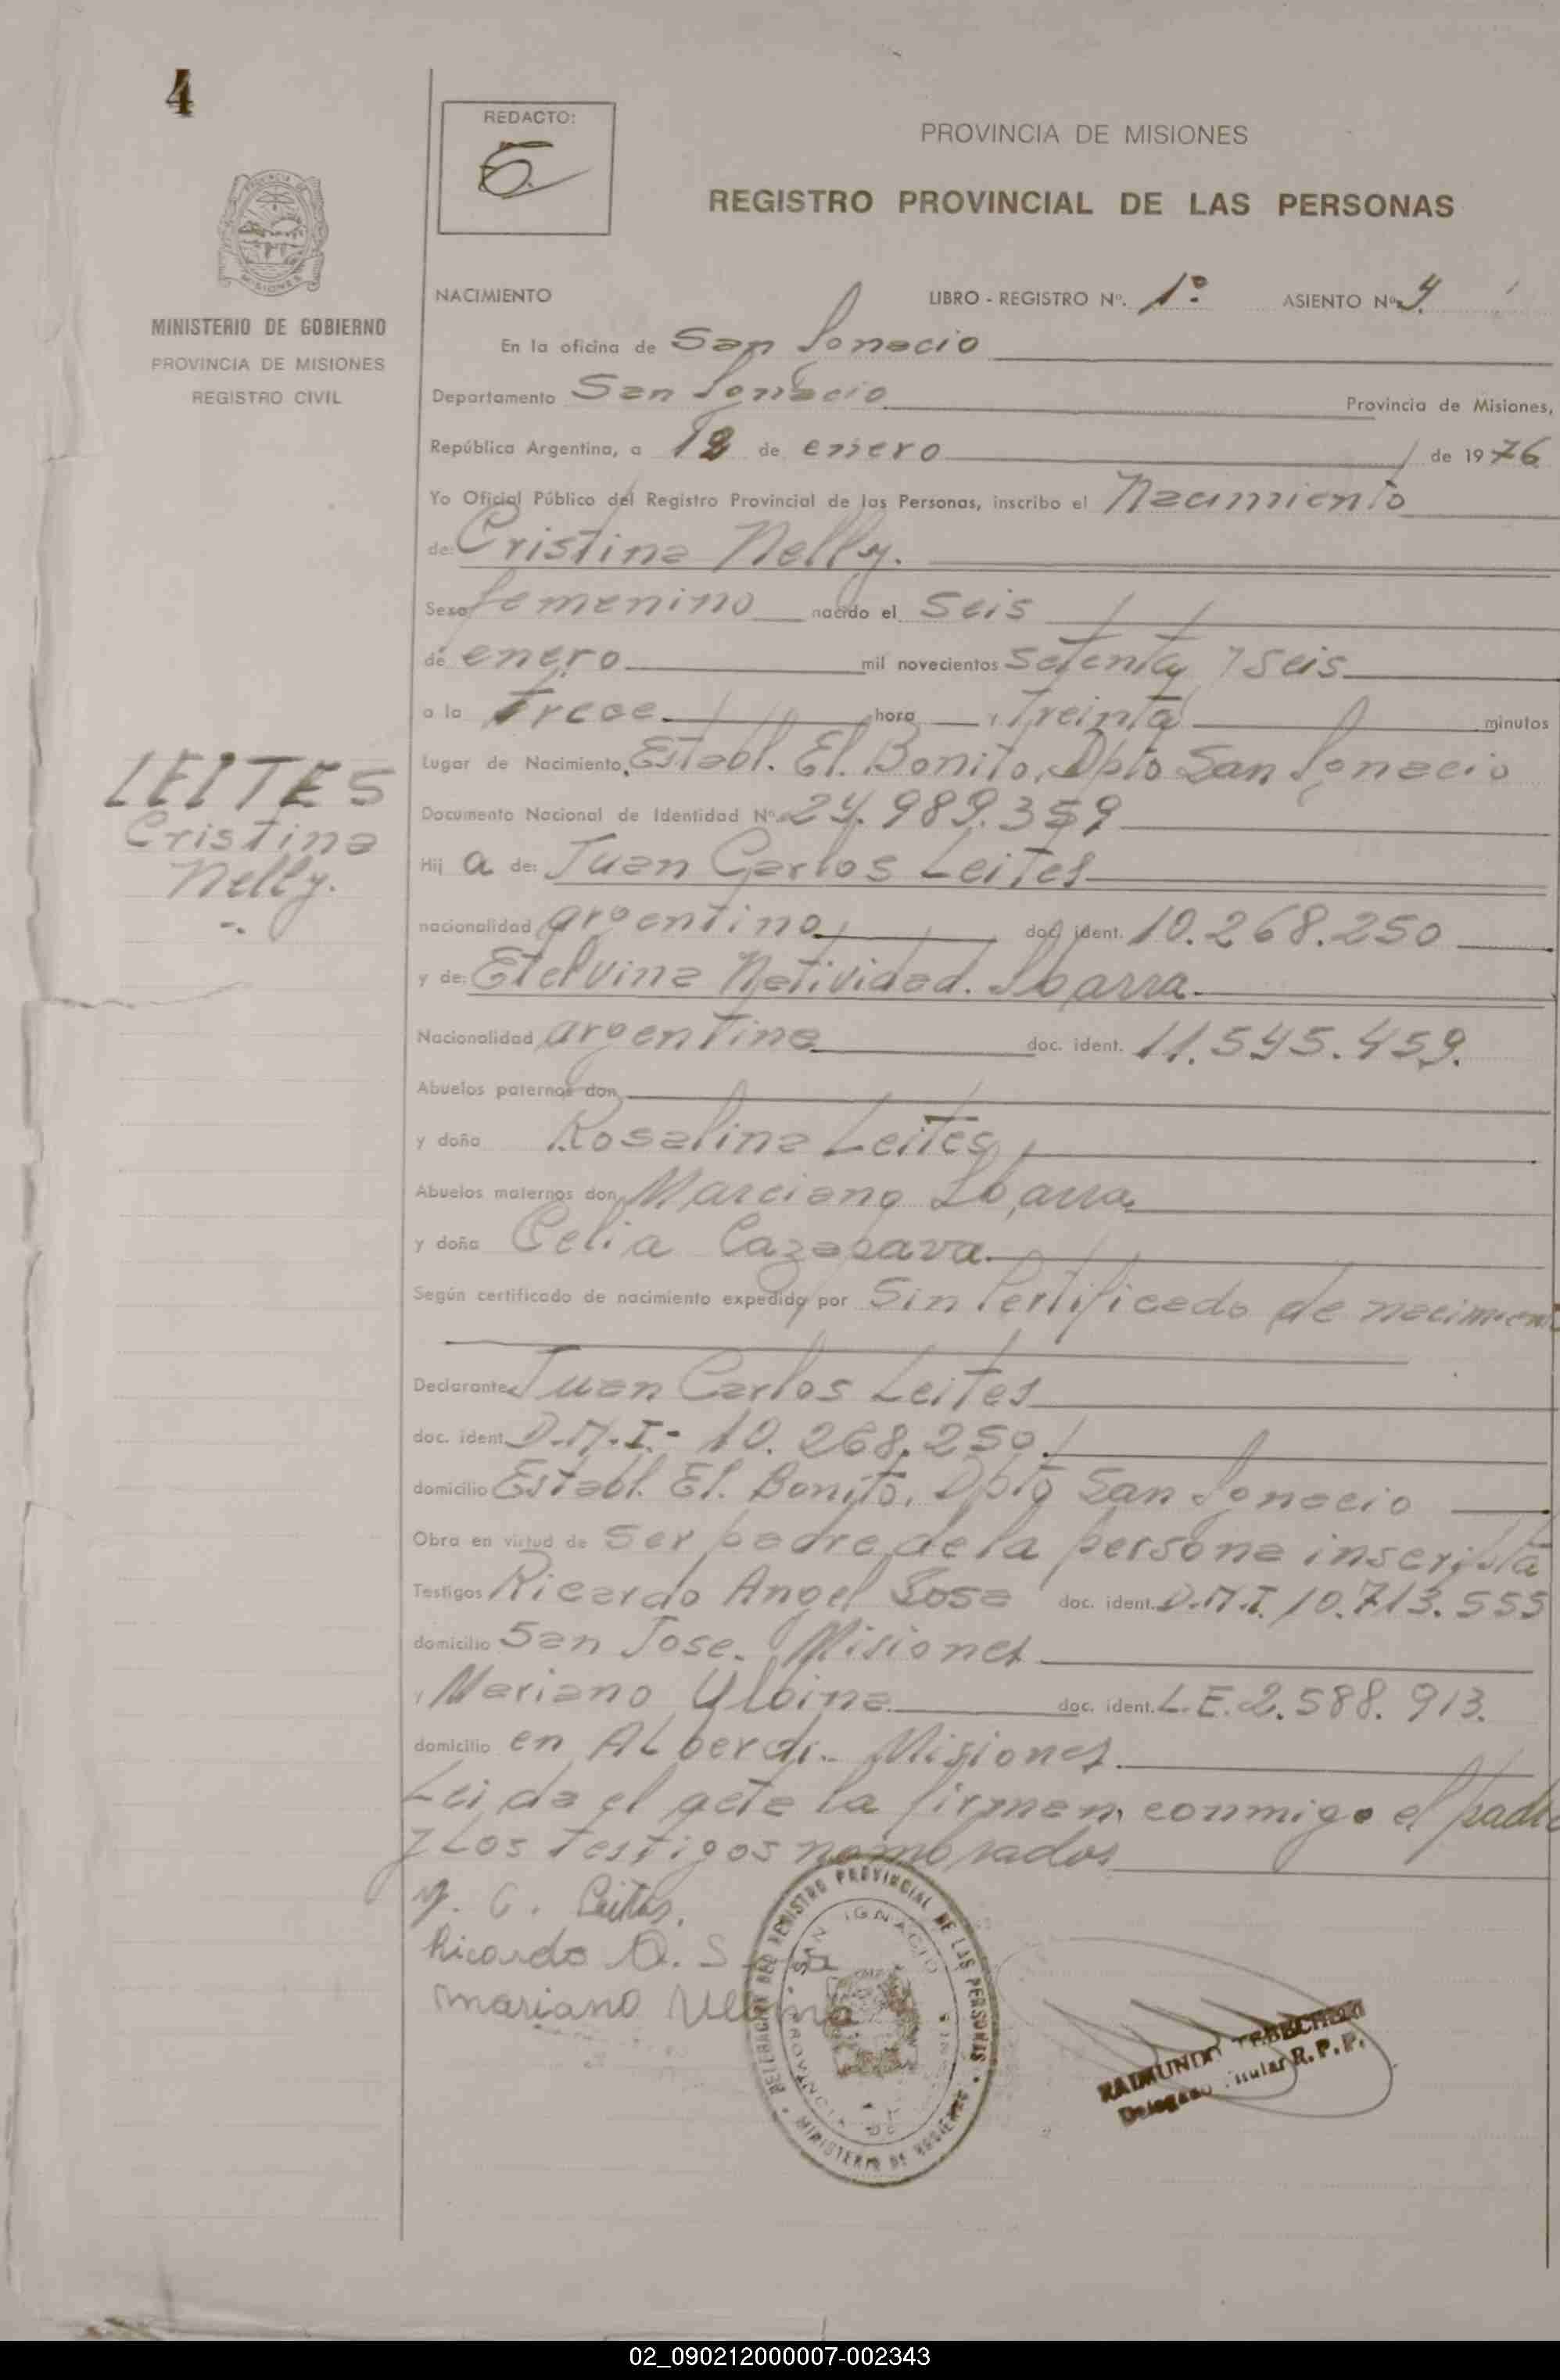 4
REDACTO:
PROVINCIA DE MISIONES
REGISTRO PROVINCIAL DE LAS PERSONAS
MINISTERIO DE GOBIERNO
PROVINCIA DE MISIONES
REGISTRO CIVIL
NACIMIENTO LIBRO - REGISTRO Nº. 1º ASIENTO Nº 4
En la oficina de San Ignacio
Departamento San Ignacio Provincia de Misiones,
República Argentina, a 12 de enero de 1976
Yo Oficial Público del Registro Provincial de las Personas, inscribo el Nacimiento
de: Cristina Nelly.
Sexo femenino nacido el seis
de enero mil novecientos setenta y seis
a la trece hora treinta minutos
Lugar de Nacimiento, Establ. El Bonito, Dpto San Ignacio
LEITES
Cristina
Nelly.
Documento Nacional de Identidad Nº 24.989.359
Hij a de: Juan Carlos Leites
nacionalidad argentino doc. ident. 10.268.250
y de: Etelvina Natividad Ibarra
Nacionalidad argentina doc. ident. 11.545.459.
Abuelos paternos don
y doña Rosalina Leites
Abuelos maternos don Marciano Ibarra
y doña Celia Cazapava
Según certificado de nacimiento expedido por Sin Certificado de nacimien
Declarante Juan Carlos Leites
doc. ident. D.N.I.- 10.268.250
domicilio Establ. El. Bonito, Dpto San Ignacio
Obra en virtud de ser padre de la persona inscripta
Testigos Ricardo Angel Sosa doc. ident. D.N.I. 10.713.555
domicilio San Jose. Misiones
y Mariano Ylbina doc. ident. L.E. 2.588.913.
domicilio en Alberdi.- Misiones.
Leida el acta la firman conmigo el padre
y Los testigos nombrados
J. C. Leites.
Ricardo A. S
Mariano
DELEGACION DEL REGISTRO PROVINCIAL DE LAS PERSONAS
MINISTERIO DE GOBIERNO
SAN IGNACIO
PROVINCIA DE
RAIMUNDO
Delegado Titular R.P.P.
02_090212000007-002343